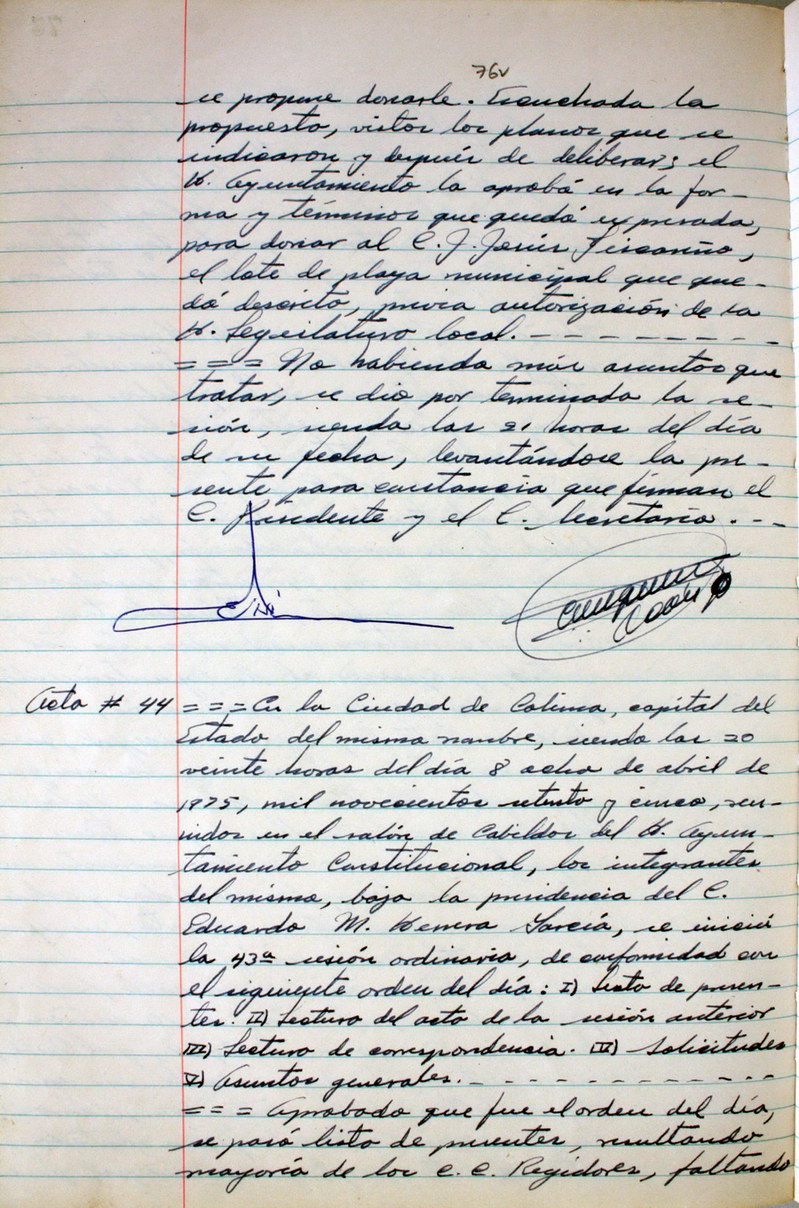 76v
se propone donarle. Escuchada la
propuesta, vistos los planos que se
indicaron y después de deliberar; el
H. Ayuntamiento la aprobó en la for-
ma y términos que quedó expresada,
para donar al C. J. Jesús
el lote de playa municipal que que-
dó descrito, previa autorización de la
H. Legislatura local. - - - - - - - - -
= = = No habiendo más asuntos que
tratar, se dio por terminada la se-
sión, siendo las 21 horas del día
de su fecha, levantándose la pre-
sente para constancia que firman el
C. Presidente y el C. Secretario. - - -
Acta # 44 = = = En la Ciudad de Colima, capital del
Estado del mismo nombre, siendo las 20
veinte horas del día 8 ocho de abril de
1975, mil novecientos setenta y cinco, reu-
nidos en el salón de Cabildos del H. Ayun-
tamiento Constitucional, los integrantes
del mismo, bajo la presidencia del C.
Eduardo M. Herrera García, se inició
la 43ª sesión ordinaria, de conformidad con
el siguiente orden del día: I) Lista de presen-
tes. II) Lectura del acta de la sesión anterior
III) Lectura de correspondencia. IV) Solicitudes
V) Asuntos generales. - - - - - - - - - - - -
= = = Aprobado que fue el orden del día,
se pasó lista de presentes, resultando
mayoría de los C. C. Regidores, faltando